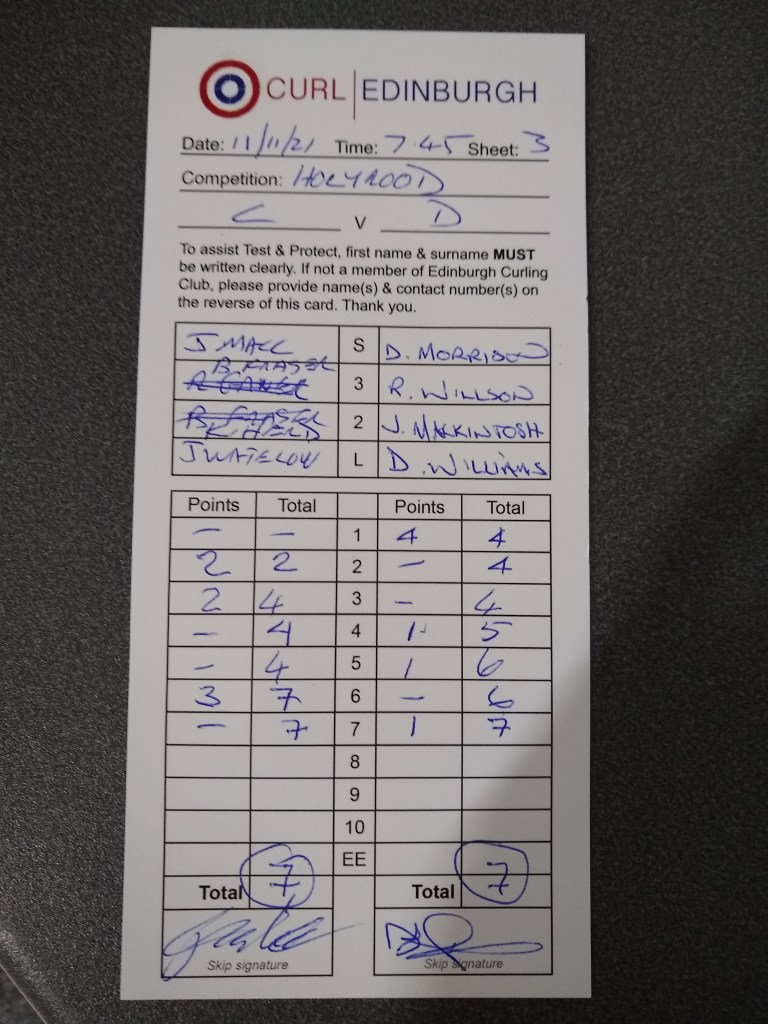 CURL | EDINBURGH
Date: 11/11/21 Time: 7.45 Sheet: 3
Competition: HOLYROOD
C V D
To assist Test & Protect, first name & surname MUST
be written clearly. If not a member of Edinburgh Curling
Club, please provide name(s) & contact number(s) on
the reverse of this card. Thank you.
J MALL S D. MORRISON
B. FRASER 3 R. WILLSON
K. HERD 2 J. MACKINTOSH
J WATELOW L D. WILLIAMS
Points Total Points Total
- - 1 4 4
2 2 2 - 4
2 4 3 - 4
- 4 4 1 5
- 4 5 1 6
3 7 6 - 6
- 7 7 1 7
8
9
10
EE
Total 7 Total 7
Skip signature Skip signature